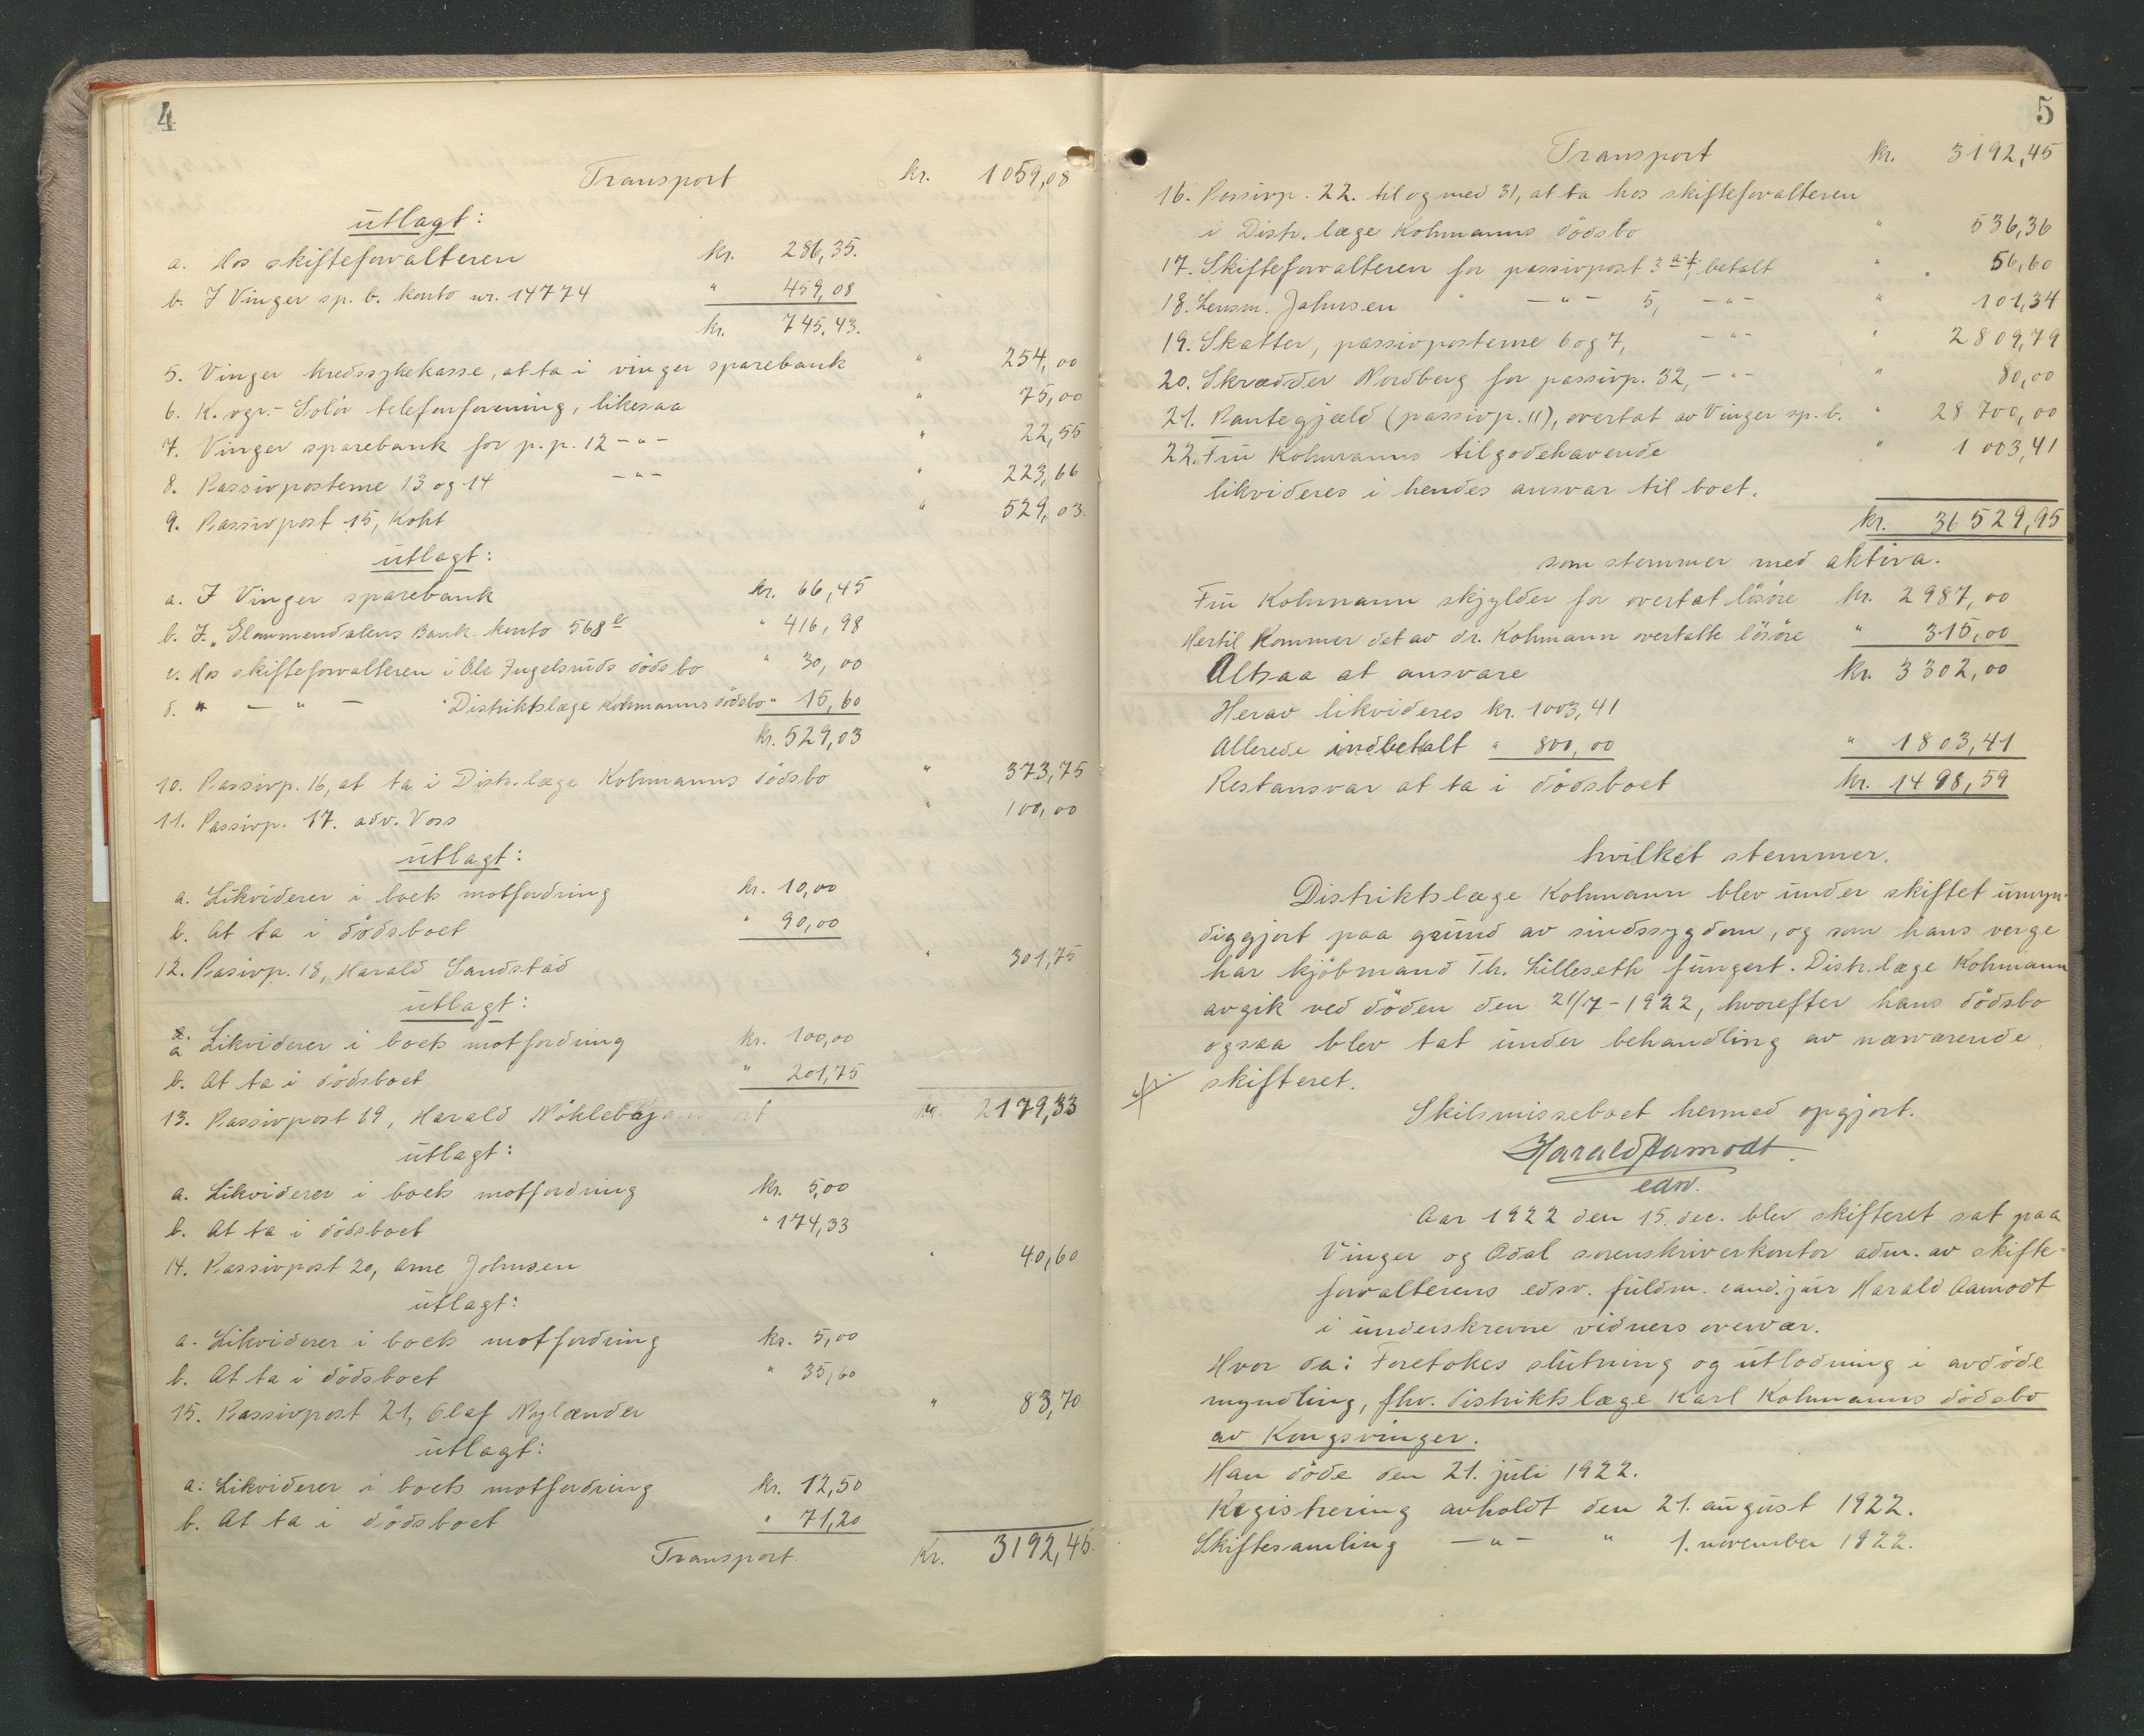 4
Transport kr. 1059,08
utlagt:
a. Hos skifteforvalteren kr. 286,35.
b. I Vinger sp. b. konto nr. 14774 " 459,08
kr. 745,43.
5. Vinger kredssykekasse, at ta i vinger sparebank " 254,00
6. K.vgr.- Solør telefonforening, likesaa " 75,00
7. Vinger sparebank for p.p. 12 -"- " 22,55
8. Passivposterne 13 og 14 -"- " 223,66
9. Passivpost 15, Koht " 529,03.
utlagt:
a. I Vinger sparebank kr. 66,45
b. I "Glommendalens Bank. konto 568 " 416,98
c. Hos skifteforvalteren i Ole Ingelsruds dødsbo " 30,00
d. " - " - " Distriktslæge Kohmanns dødsbo " 15,60
kr. 529,03
10. Passivp. 16, at ta i Distr.læge Kohmanns dødsbo " 373,75
11. Passivp. 17. adv. Voss " 100,00
utlagt:
a. Likviderer i boets motfordring kr. 10,00
b. At ta i dødsboet " 90,00
12. Pasivp. 18, Harald Sandstad " 301,75
utlagt:
a. Likviderer i boets motfordring kr. 100,00
b. At ta i dødsboet " 201,75
13. Passivpost 19, Harald Nökleby kr. 2179,33
utlagt:
a. Likviderer i boets motfordring kr. 5,00
b. At ta i dødsboet " 174,33
14. Passivpost 20, Arne Johnsen " 40,60
utlagt:
a. Likviderer i boets motfordring kr. 5,00
b. At ta i dødsboet " 35,60
15. Passivpost 21, Olaf Nylænder " 83,70
utlagt:
a. Likviderer i boets motfordring kr. 12,50
b. At ta i dødsboet " 71,20
Transport. Kr. 3192,45
5
Transport kr. 3192,45
16. Passivp. 22. til og med 31, at ta hos skifteforvalteren
i Distr. læge Kohmanns dödsbo " 536,36
17. Skifteforvalteren for passivpost 3 a-f, betalt " 56,60
18. Lensm. Johnsen " -"- 5, -"- " 101,34
19. Skatter, passivposterne 6 og 7, -"- " 2809,79
20. Skrædder Nordberg for passivp. 32, -"- " 80,00
21. Pantegjæld (passivp. 11), overtat av Vinger sp.b. " 28 700,00
22. Fru Kohmanns tilgodehavende " 1 003,41
likvideres i hendes ansvar til boet.
kr. 36 529,95
som stemmer med aktiva.
Fru Kohmann skylder for overtat lösöre kr. 2987,00
Hertil kommer det av dr. Kohmann overtatte lösöre " 315,00
Altsaa at ansvare kr. 3302,00
Herav likvideres kr. 1003,41
Allerede indbetalt " 800,00 " 1803,41
Restansvar at ta i dödsboet kr. 1498,59
hvilket stemmer.
Distriktslæge Kohmann blev under skiftet umyn-
diggjort paa grund av sindssygdom, og som hans verge
har kjöbmand Th. Lilleseth fungert. Distr.læge Kohmann
avgik ved döden den 21/7-1922, hvorefter hans dödsbo
ogsaa blev tat under behandling av nærværende
skifteret.
Skilsmisseboet hermed opgjort.
Harald Aamodt
edsv.
Aar 1922 den 15. dec. blev skifteret sat paa
Vinger og Odal sorenskriverkontor adm. av skifte-
forvalterens edsv. fuldm. cand. jur Harald Aamodt
i underskrevne vidners overvær.
Hvor da: Foretokes slutning og utlodning i avdöde
myndling, fhv. distriktslæge Karl Kohmanns dödsbo
av Kongsvinger.
Han döde den 21. juli 1922.
Registrering avholdt den 21. august 1922.
Skiftesamling -"- " 1. november 1922.